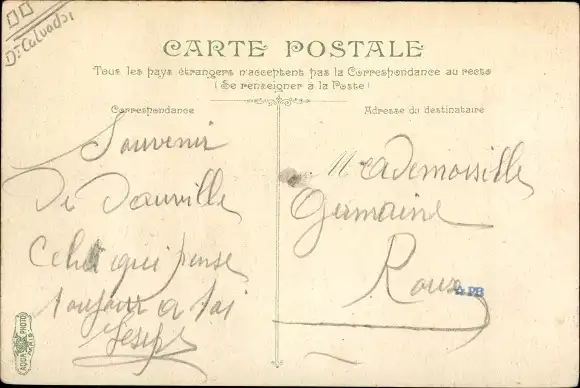 Dt Calvados
CARTE POSTALE
Tous les pays étrangers n'acceptent pas la Correspondance au recto
(Se renseigner à la Poste)
Correspondance
Adresse du destinataire
Souvenir
De Deauville
Celui qui pense
toujours a toi
Joseph
Mademoiselle
Germaine
Roux
PB
AQUA PHOTO
PARIS